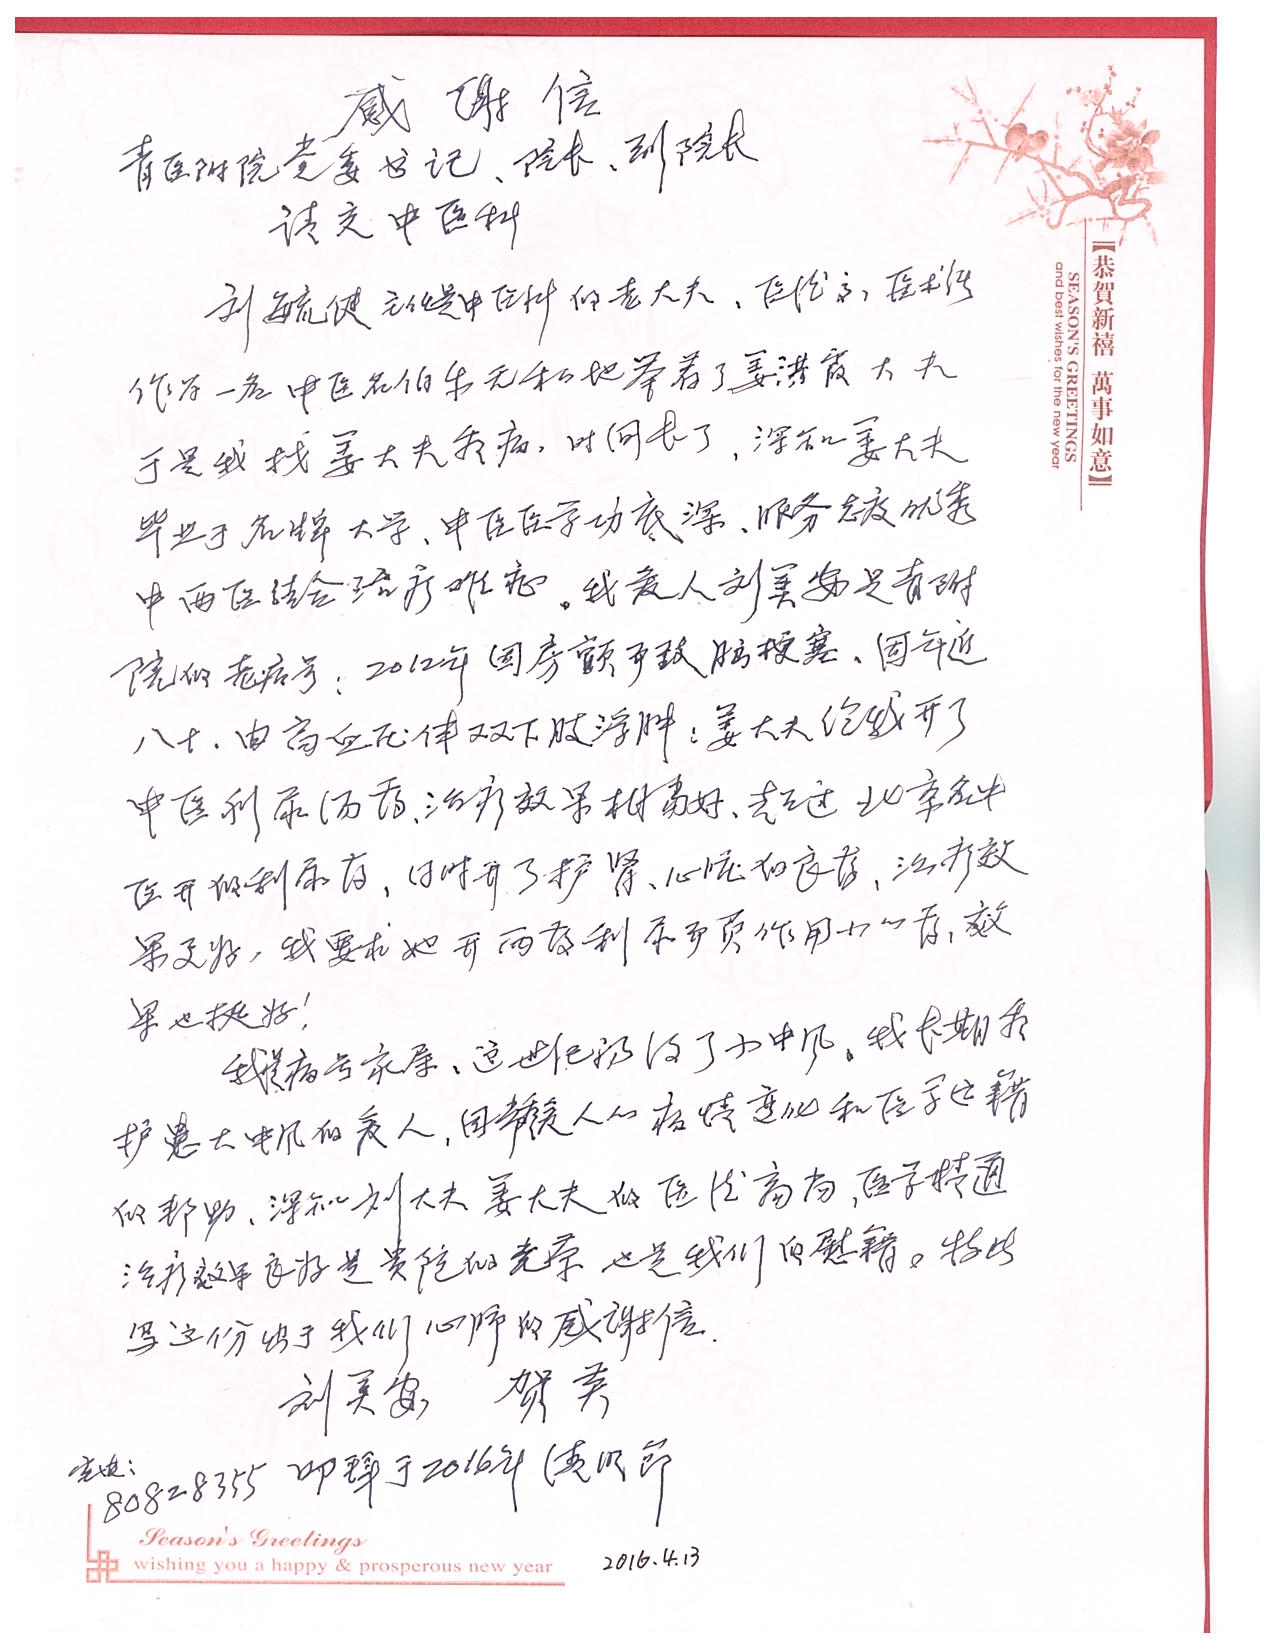 感谢信
青医附院党委书记、院长、副院长
请交中医科
刘毓健主任是中医科的老大夫、医德高,医术精
作为一名中医名伯乐无私地举荐了姜洪霞大夫
于是我找姜大夫看病,时间长了,深知姜大夫
毕业于名牌大学、中医医学功底深、服务态度优秀
中西医结合治疗难症。我爱人刘美安是青附
院的老病号;2012年因房颤而致脑梗塞、因年近
八十、由高血压伴双下肢浮肿;姜大夫给我开了
中医利尿汤药、治疗效果相当好、走过北京名中
医开的利尿药,同时开了护肾、心脏的良药,治疗效
果更好,我要求她开西药利尿而负作用小的药,效
果也挺好!
我是病号家属、这世纪初得了小中风。我长期看
护患大中风的爱人,因爱人的病情变化和医学书籍
的帮助、深知刘大夫姜大夫的医德高尚,医学精通
治疗效果良好是贵院的光荣也是我们的慰籍。特此
写这份出于我们心肺的感谢信.
刘美安 贺英
宅电:
80828355 叩拜于2016年清明节
2016.4.13
【恭賀新禧 萬事如意】
SEASON'S GREETINGS
and best wishes for the new year
Season's Greetings
wishing you a happy & prosperous new year